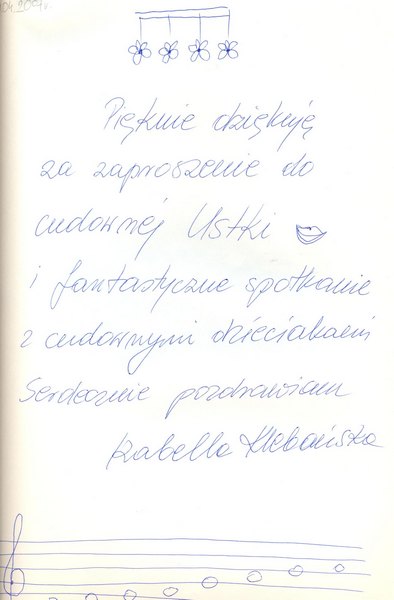 04.2007r.
Pięknie dziękuję
za zaproszenie do
cudownej Ustki
i fantastyczne spotkanie
z cudownymi dzieciakami
Serdecznie pozdrawiam
Izabella Klebańska